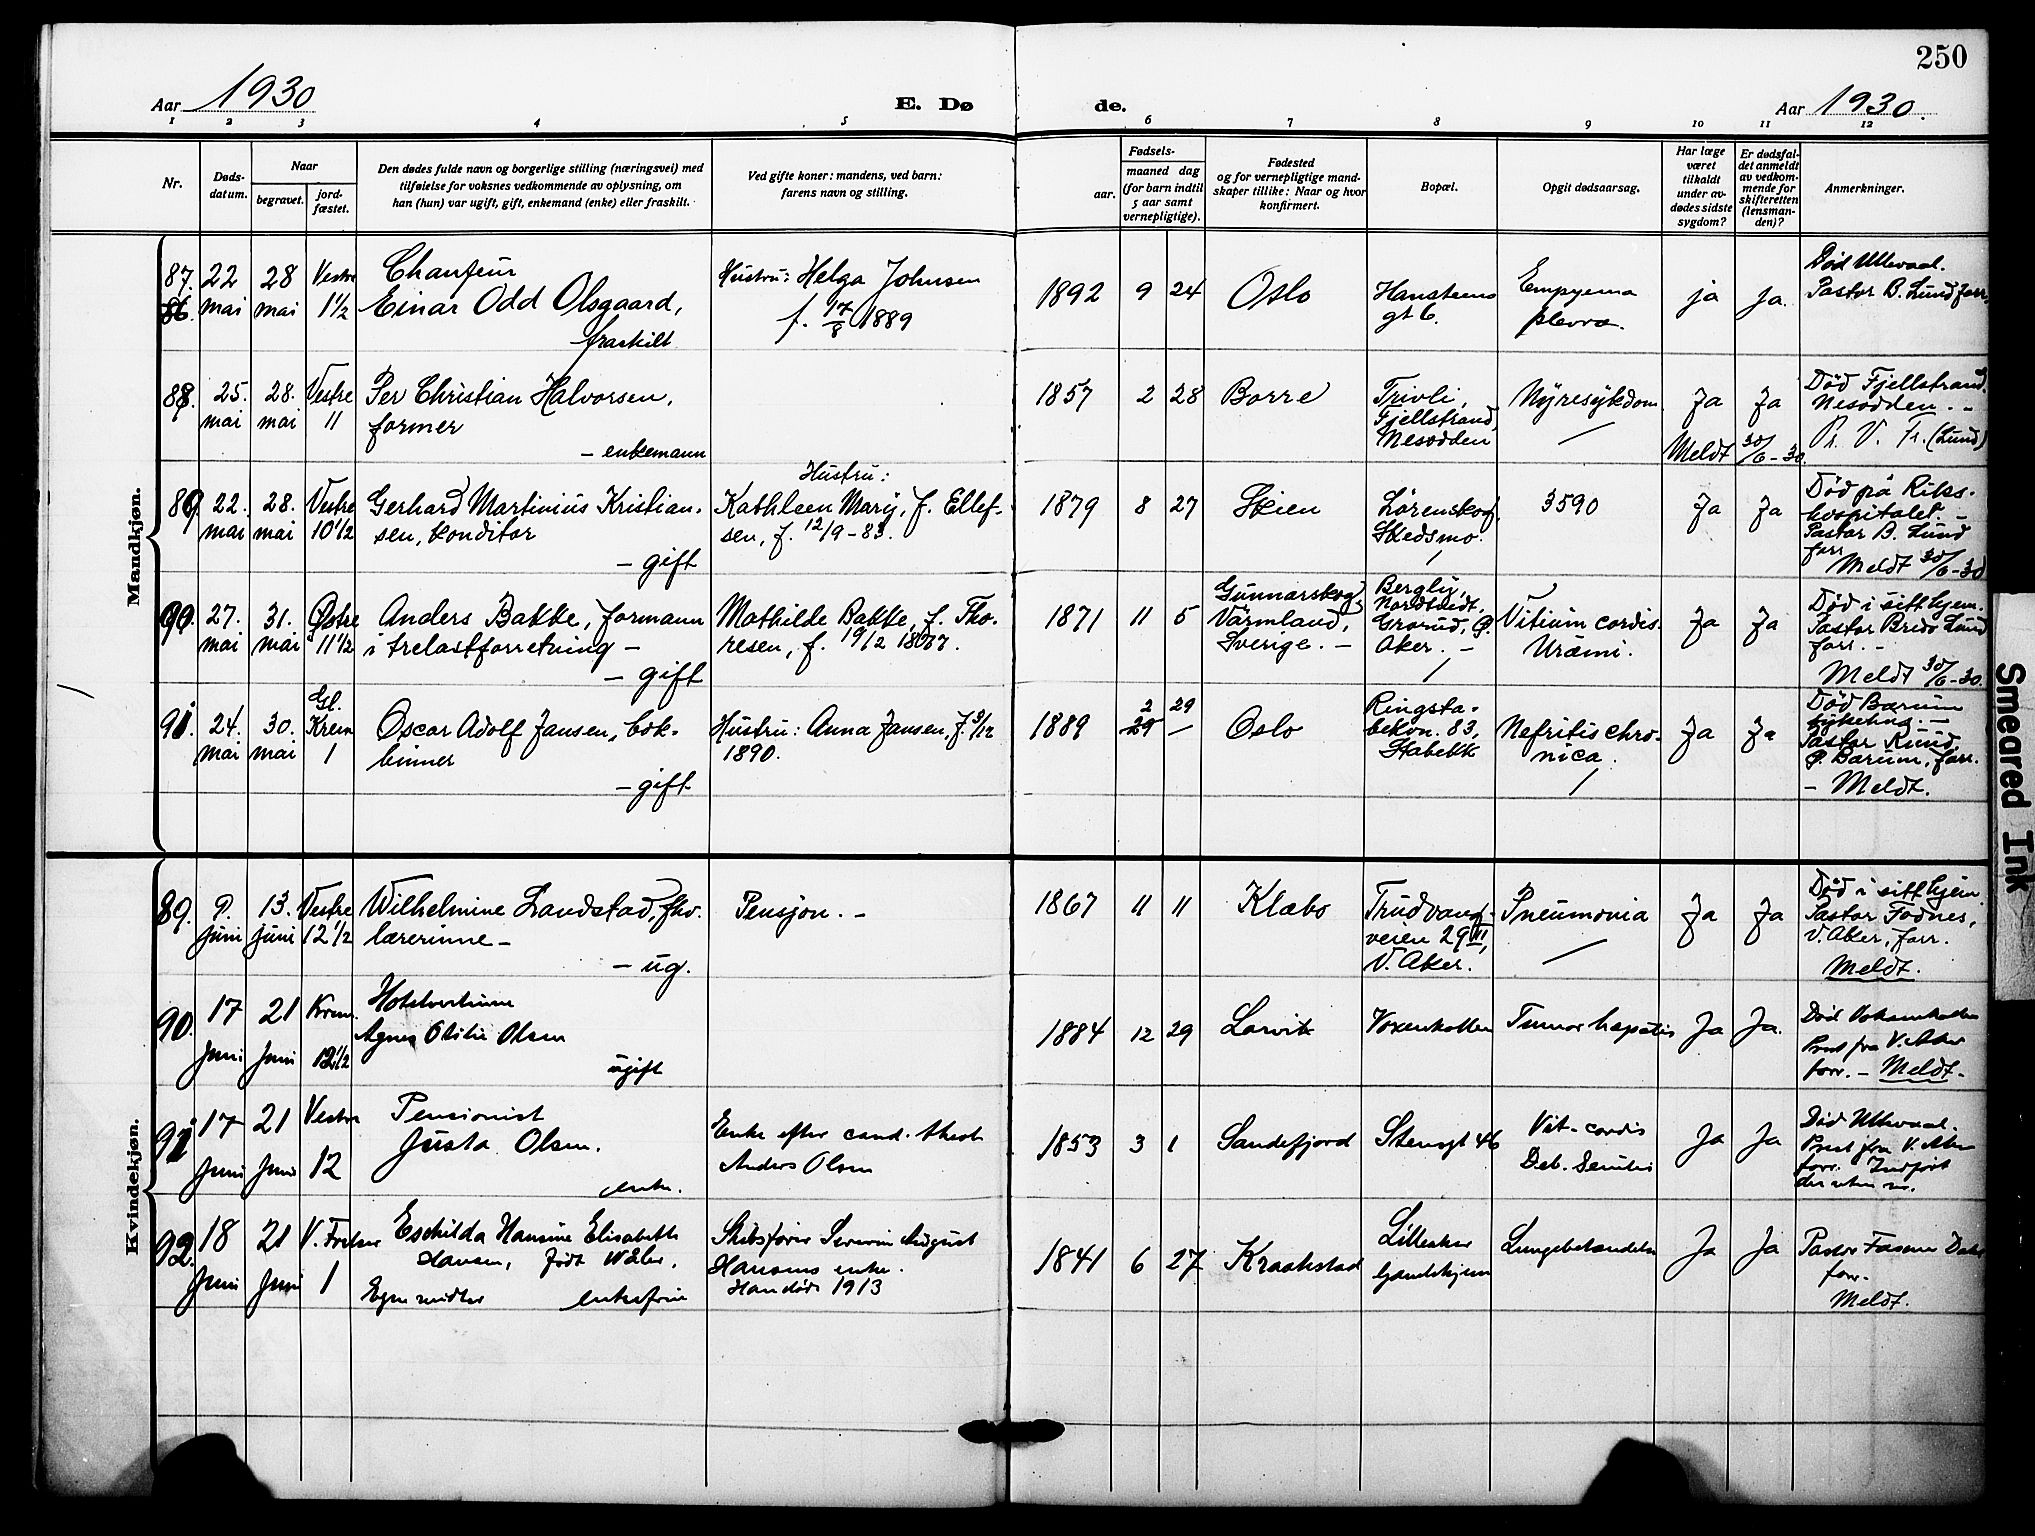 250
Aar 1930
E. Dø
de.
Aar 1930.
1 2 3 4 5 6 7 8 9 10 11 12
Nr.
Døds-
datum.
Naar
begravet.
jord-
fæstet.
Den dødes fulde navn og borgerlige stilling (næringsvei) med
tilføielse for voksnes vedkommende av oplysning, om
han (hun) var ugift, gift, enkemand (enke) eller fraskilt.
Ved gifte koner: mandens, ved barn:
farens navn og stilling.
Fødsels-
aar.
maaned dag
(for barn indtil
5 aar samt
vernepligtige).
Fødested
og for vernepligtige mand-
skaper tillike: Naar og hvor
konfirmert.
Bopæl.
Opgit dødsaarsag.
Har læge
været
tilkaldt
under av-
dødes sidste
sygdom?
Er dødsfal-
det anmeldt
av vedkom-
mende for
skifteretten
(lensman-
den)?
Anmerkninger.
Mandkjøn.
87.
86.
22
mai
28
mai
Vestre
1 1/2
Chaufeur
Einar Odd Olsgaard,
fraskilt
Hustru: Helga Johnsen
f. 17/8 1889
1892
9
24
Oslo
Hansteens
gt 6.
Empyema
plevræ.
ja
ja.
Død Ullevaal.
Pastor B. Lund forr.
88.
25.
mai
28.
mai
Vestre
11
Per Christian Halvorsen,
former
- enkemann
1857
2
28
Borre
Trivli,
Fjellstrand,
Nesodden
Nyresykdom
Ja
Ja
Meldt 30/6-30.
Død Fjellstrand,
Nesodden. -
Pr. V. Fr. (Lund)
89.
22.
mai
28.
mai
Vestre
10 1/2
Gerhard Martinius Kristian-
sen, konditor
- gift
Hustru:
Kathleen Mary, f. Ellef-
sen, f. 12/9-83.
1879
8
27
Skien
Lørenskog,
Skedsmo.
3590
Ja
Ja
Død på Riks-
hospitalet. -
Pastor B. Lund
forr.
Meldt 30/6-30
90.
27.
mai
31.
mai
Østre
11 1/2
Anders Bakke, formann
i trelastforretning -
- gift
Mathilde Bakke, f. Tho-
resen, f. 19/2 1877.
1871
11
5
Gunnarskog,
Värmland,
Sverige. -
Bergly,
Nordtvedt,
Grorud, Ø.
Aker. -
Vitium cordis.
Urämi.
Ja
Ja
Død i sitt hjem.
Pastor Bredo Lund
forr. -
Meldt 30/6-30.
91.
24.
mai
30.
mai
Gl.
Krem
1
Oscar Adolf Jansen, bok-
binner
- gift
Hustru: Anna Jansen, f. 3/12
1890.
1889
2 29
29 -
Oslo
Ringsta-
bekvn. 83,
Stabekk
Nefritis chro-
nica.
Ja
Ja
Død Bærum
sykehus. -
Pastor Ruud,
Ø. Bærum, forr.
- Meldt.
Kvindekjøn.
89.
9.
juni
13.
juni
Vestre
12 1/2
Wilhelmine Landstad, fhv.
lærerinne -
- ug.
Pensjon. -
1867
11
11
Klæbo
Trudvang-
veien 29 III,
V. Aker.
Pneumonia
Ja
Ja
Død i sitt hjem
Pastor Fodnes,
V. Aker, forr.
Meldt.
90.
17
Juni
21
Juni
Krem.
12 1/2
Hotelvertinne
Agnes Otilie Olsen
ugift
1884
12
29
Larvik
Voxenkollen
Tumor hepatis
Ja
Ja.
Død Voksenkollen
Prest fra V. Aker
forr. - Meldt -
91
17
Juni
21
Juni
Vestre
12
Pensionist
Justa Olsen.
enke.
Enke efter cand. theol.
Anders Olsen
1853
3
1
Sandefjord
Stensgt 46
Vit. cordis
Deb. Senilis
Ja
Ja
Død Ullevaal.
Prest fra V. Aker
forr. Indført
92.
18
Juni
21
Juni
V. Frelser
1
Eschilda Hansine Elisabeth
Hansen, født Wåler.
Egne midler
enkefrue
Skibsfører Severin August
Hansens enke.
Han døde 1913
1841
6
27
Kraakstad
Lilleaker
Gamlehjem
Lungebetændelse
Ja
Ja
Pastor
forr.
Meldt.
Smeared Ink